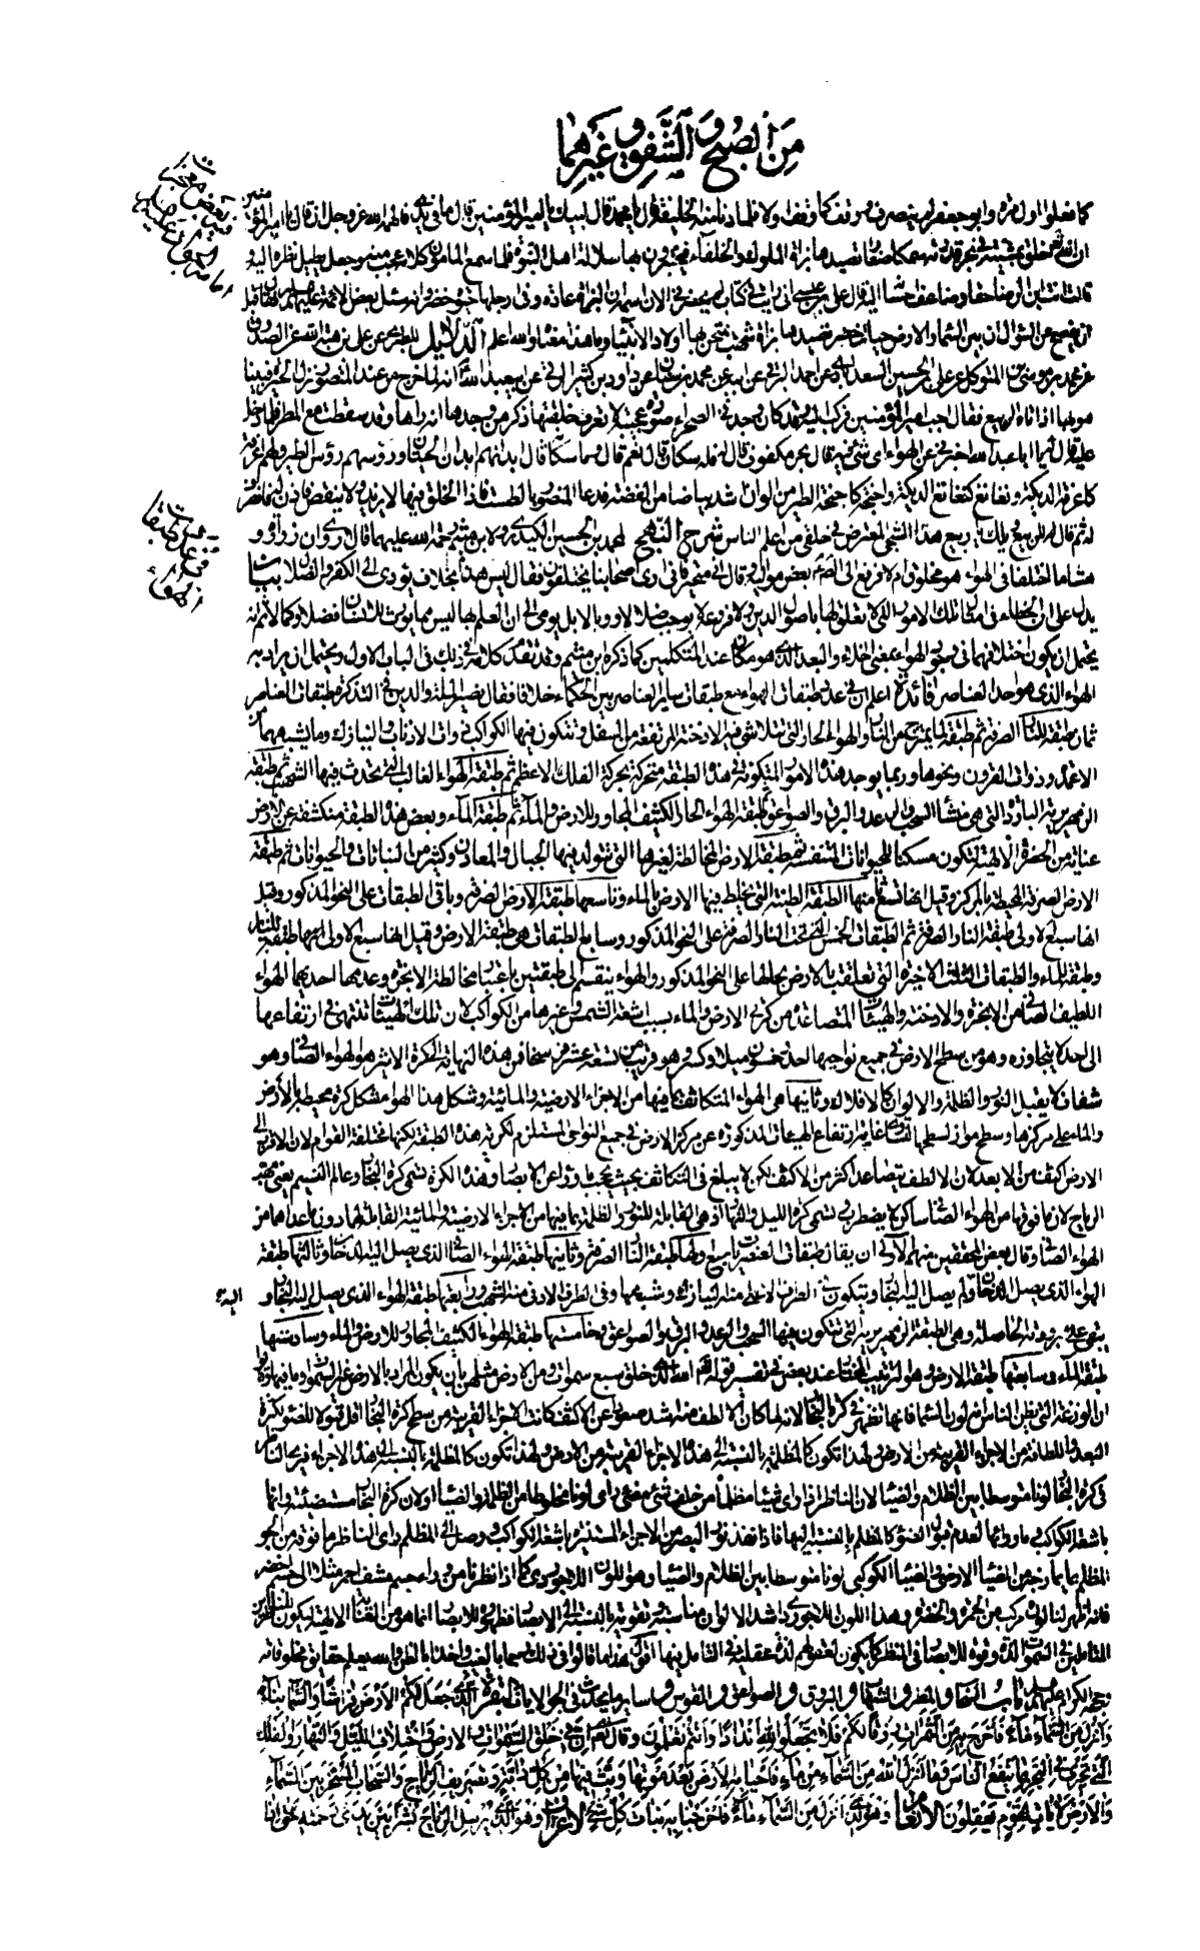 مِنَ الصُّبْحِ وَ الشَّفَقِ وَ غَيْرِهِمَا
كما فعلوا اول مرة وابو جعفر لم ينصرف ووقف كما وقف اولا فلما دنا منه الخليفة قال يا محمد قال لبيك يا امير المؤمنين قال ما في يدي فالهمه الله عز وجل ان قال يا امير المؤ
ان الله تعالى خلق بمشيته في بحر قدرته سمكا صغارا تصيدها بزاة الملوك والخلفاء فيختبرون بها سلالة اهل النبوة فلما سمع المأمون كلامه عجب منه وجعل يطيل نظره اليه و
قال انت ابن الرضا حقا وضاعف احسانه اليه قال علي بن عيسى اني رايت في كتاب لم يحضرني الان اسمه ان البزاة عادت وفي ارجلها حيات خضر وانه سئل بعض الائمة عليهم السلام فقال قبل
ان يفصح عن السؤال ان بين السماء والارض حيات خضر تصيدها بزاة شهب يمتحن بها اولاد الانبياء وما هذا معناه والله اعلم الدلائل للطبري عن علي بن هبة الله عن الصدوق
عن محمد بن موسى بن المتوكل عن علي بن الحسين السعدابادي عن احمد البرقي عن ابيه عن محمد بن سنان عن داود بن كثير الرقي عن ابي عبد الله انه لما خرج من عند المنصور نزل الحيرة فبينا
هو بها اذ اتاه الربيع فقال اجب امير المؤمنين فركب اليه وقد كان وجد في الصحراء صورة عجيبة لا يعرف خلقتها ذكر من وجدها انه راها وقد سقطت مع المطر فلما دخل
عليه قال له يا ابا عبد الله اخبرني عن الهواء اي شيء فيه قال بحر مكفوف قال له فله سكان قال نعم قال وما سكانه قال ابدانهم ابدان الحيتان ورؤسهم رؤس الطير ولهم اعرفة
كاعرفة الديكة ونغانغ كنغانغ الديكة واجنحة كاجنحة الطير من الوان اشد بياضا من الفضة فدعا المنصور بالطست فاذا الخلق فيها لا يزيد ولا ينقص فاذن له فانصرف
ثم قال للربيع ويلك يا ربيع هذا الشجى المعترض في حلقي من اعلم الناس شرح النهج لمحمد بن الحسين الكيدري ولابن ميثم رحمة الله عليهما قال روي ان زرارة و
هشاما اختلفا في الهواء هو مخلوق ام لا فرفع الى الصادق بعض مواليه وقال اني متحير فاني ارى اصحابنا يختلفون فقال ليس هذا بخلاف يؤدي الى الكفر والضلال بيان
يدل على ان الخطاء في امثال تلك الامور التي لا تعلق لها باصول الدين ولا فروعه لا يوجب ضلالا ووبالا بل يومى الى ان العلم بها ليس مما يورث للانسان فضلا وكمالا ثم انه
يحتمل ان يكون اختلافهما في وجود الهواء بمعنى الخلاء والبعد الذي هو مكان عند المتكلمين كما ذكره ابن ميثم وقد تقدم كلامه في ذلك في الباب الاول ويحتمل ان يراد به
الهواء الذي هو احد العناصر فائدة اعلم ان في عدد طبقات الهواء مع طبقات سائر العناصر بين الحكماء خلافا فقال نصير الملة والدين في التذكرة طبقات العناصر
ثمان طبقة للنار الصرفة ثم طبقة لما يمتزج من النار والهواء الحار التي تتلاشى فيها الادخنة المرتفعة من السفل وتتكون فيها الكواكب ذوات الاذناب والنيازك وما يشبههما من
الاعمدة وذوات القرون ونحوها وربما يوجد هذه الامور المتكونة في هذه الطبقة متحركة بحركة الفلك الاعظم ثم طبقة الهواء الغالب التي تحدث فيها الشهب ثم طبقة
الزمهريرية الباردة التي هي منشأ السحب والرعد والبرق والصواعق ثم طبقة الهواء الحار الكثيف المجاور للارض والماء ثم طبقة الماء وبعض هذه الطبقة منكشفة عن الارض
عناية من الحضرة الالهية لتكون مسكنا للحيوانات المتنفسة ثم طبقة الارض المخالطة لغيرها التي تتولد فيها الجبال والمعادن وكثير من النباتات والحيوانات ثم طبقة
الارض الصرفة المحيطة بالمركز وقيل انها تسع منها الطبقة الطينية التي يخلط فيها الارض بالماء وتاسعها طبقة الارض الصرفة وباقي الطبقات على النحو المذكور وقيل
انها سبع الاولى طبقة النار الصرفة ثم الطبقات الخمس التي تحت النار الصرفة على النحو المذكور وسابع الطبقات هي طبقة الارض وقيل انها سبع الاولى منها طبقة للنار
وطبقة للماء والطبقات الثلث الاخيرة التي تعلقت بالارض بحالها على النحو المذكور والهواء ينقسم الى طبقتين باعتبار مخالطة الابخرة وعدمها احدهما الهواء
اللطيف الصافي من الابخرة والادخنة والهيئات المتصاعدة من كرتي الارض والماء بسبب اشعة الشمس وغيرها من الكواكب لان تلك الهيئات تنتهي في ارتفاعها
الى حد لا يتجاوزه وهو من سطح الارض في جميع نواحيها احد وخمسون ميلا وكسر وهو قريب من تسعة عشر فرسخا فمن هذه النهاية الى كرة الاثير هو الهواء الصافي وهو
شفاف لا يقبل النور والظلمة والالوان كالافلاك وثانيها هي الهواء المتكاثف بما فيها من الاجزاء الارضية والمائية وشكل هذا الهواء مشكل كرة محيطة بالارض
والماء على مركزها وسطح مواز لسطحها لتساوي غاية ارتفاع الهيئات المذكورة عن مركز الارض في جميع النواحي المستلزم لكرية هذه الطبقة لكنها مختلفة القوام لان الاقرب الى
الارض اكثف من الابعد لان الالطف يتصاعد اكثر من الاكثف لكن لا يبلغ في التكاثف بحيث يحجب ما وراءه عن الابصار وهذه الكرة تسمى كرة البخار وعالم النسيم يعني مهب
الرياح لان ما فوقها من الهواء الصافي ساكن لا يضطرب وتسمى كرة الليل والنهار اذ هي القابلة للنور والظلمة بما فيها من الاجزاء الارضية والمائية القابلة لهما دون ما عداها من
الهواء الصافي وقال بعض المحققين منهم الاولى ان يقال طبقات العنصريات سبع اولها طبقة النار الصرفة وثانيتها طبقة الهواء الصافي الذي يصل اليه الدخان وثالثتها طبقة
الهواء الذي يصل اليه الدخان ولم يصل اليه البخار ويتكون في الطرف الاعلى منه النيازك وشبهها وفي الطرف الادنى منه الشهب ورابعتها طبقة الهواء الذي يصل اليه البخار و
يبقى على برودته الحاصلة وهي الطبقة الزمهريرية التي تتكون فيها السحب والرعد والبرق والصواعق وخامستها طبقة الهواء الكثيف المجاور للارض والماء وسادستها
طبقة الماء وسابعتها طبقة الارض وهو الترتيب المختار عند بعض في تفسير قوله تعالى الله الذي خلق سبع سموات ومن الارض مثلهن بان يكون المراد بالارض غير السموات وما فيها وقالوا
ان الزرقة التي يظن الناس انها لون السماء فانها تظهر في كرة البخار لانه لما كان الالطف منه اشد صعودا عن الاكثف كانت الاجزاء القريبة من سطح كرة البخار اقل قبولا للضوء لكثرة
البعد واللطافة من الاجزاء القريبة من الارض ولهذا تكون كالمظلمة بالنسبة الى هذه الاجزاء القريبة من الارض ولهذا تكون كالمظلمة بالنسبة الى هذه الاجزاء فيرى الناظر
في كرة البخار لونا متوسطا بين الظلام والضياء لان الناظر اذا راى شيئا مظلما من خلف شيء مضيء راى لونا مخلوطا من الظلمة والضياء او لان كرة البخار مستضيئة دائما
باشعة الكواكب وما وراءها لعدم قبول الضوء كالمظلم بالنسبة اليها فاذا نفذ نور البصر من الاجزاء المستنيرة باشعة الكواكب ووصل الى المظلم راى الناظر ما فوقه من الجو
المظلم بما يمازجه من الضياء الارضي والضياء الكوكبي لونا متوسطا بين الظلام والضياء وهو اللون اللاجوردي كما اذا نظرنا من وراء جسم مشف احمر مثلا الى جسم اخضر
فانه يظهر لنا لون مركب من الحمرة والخضرة وهذا اللون اللاجوردي اشد الالوان مناسبة وتقوية بالنسبة الى الابصار فظهوره للابصار انما هو من العناية الالهية ليكون للناظرين
المتاملين في السموات لذة وقوة للابصار في النظر كما يكون لعقولهم لذة عقلية في التامل فيها اقول هذا ما قالوا في ذلك رجما بالغيب واخذا بالظن والله يعلم حقايق مخلوقاته
وحججه الكرام عليهم السلام باب السحاب والمطر والشهاب والبروق والصواعق والقوس وساير ما يحدث في الجو الايات البقرة الذي جعل لكم الارض فراشا والسماء بناء
وانزل من السماء ماء فاخرج به من الثمرات رزقا لكم فلا تجعلوا لله اندادا وانتم تعلمون وقال تعالى ان في خلق السموات والارض واختلاف الليل والنهار والفلك
التي تجري في البحر بما ينفع الناس وما انزل الله من السماء من ماء فاحيا به الارض بعد موتها وبث فيها من كل دابة وتصريف الرياح والسحاب المسخر بين السماء
والارض لايات لقوم يعقلون الانعام وهو الذي انزل من السماء ماء فاخرجنا به نبات كل شيء الاعراف وهو الذي يرسل الرياح بشرا بين يدي رحمته حتى اذا